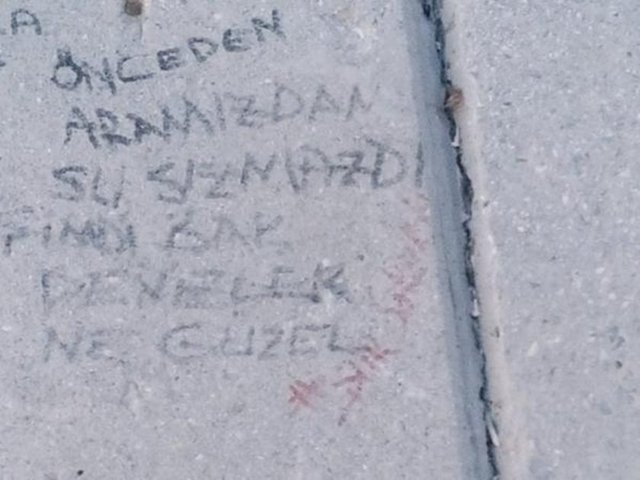 ÖNCEDEN
ARAMIZDAN
SU SIZMAZDI
BAK
DENELIK
NE GUZEL